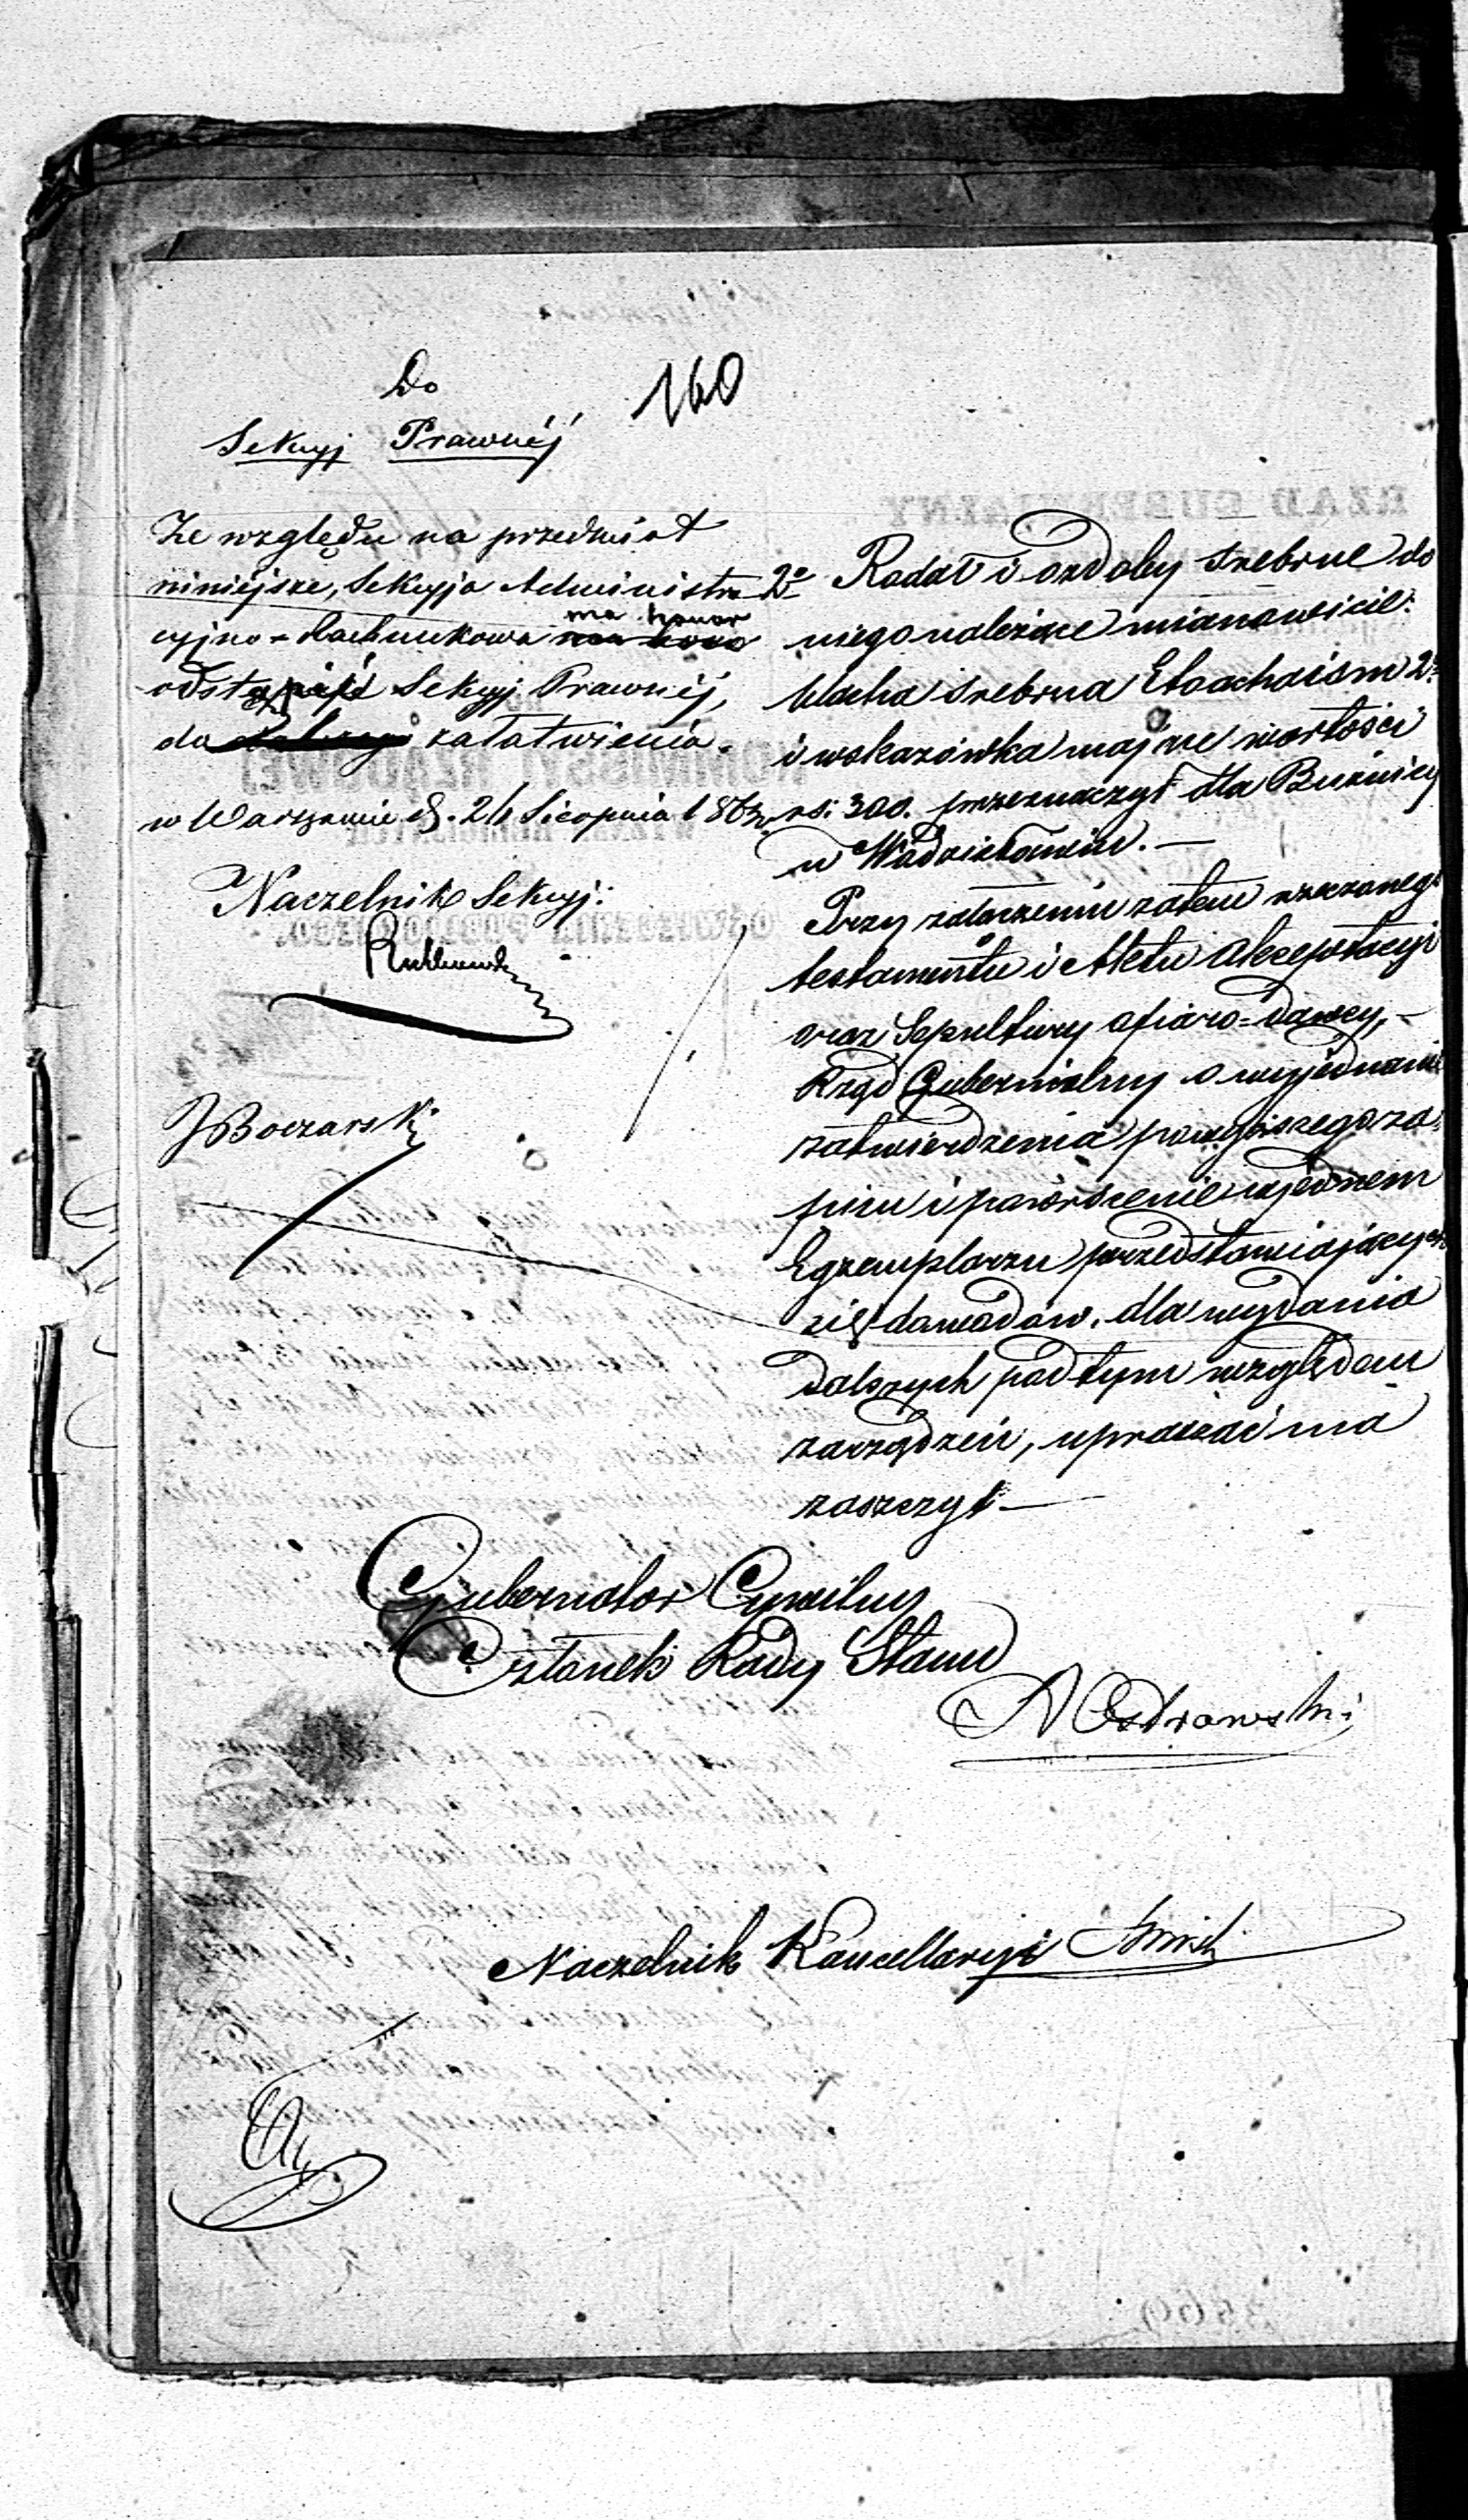 160
Do
Sekcyj Prawnéj
Ze względu na przedmiot
niniejsze, Sekcyja Administra
cyjno-Rachunkowa ma honor
odstąpić Sekcyj Prawnéj,
do załatwienia.
w Warszawie d. 26 Sierpnia 1863 r.
Naczelnik Sekcyj:
JBoczarski
2o Rodał i ozdoby srebrne do
niego należące mianowicie:
blacha srebrna 2
i wskazówka mające wartości
rs: 300. przeznaczył dla Bużnicy
w Wodzisławiu. —
Przy załączeniu zatem rzeczonego
testamentu i Aktu akceptacyi
oraz Sepultury ofiaro=dawcy, —
Rząd Gubernialny o wyjednanie
zatwierdzenia powyższego za
pisu i powrócenie w jednem
Egzemplarzu przedstawiających
się dowodów, dla wydania
dalszych pod tym względem
zarządzeń, upraszać ma
zaszczyt —
Gubernator Cywilny
Członek Rady Stanu
Ostrowski
Naczelnik Kancellaryi